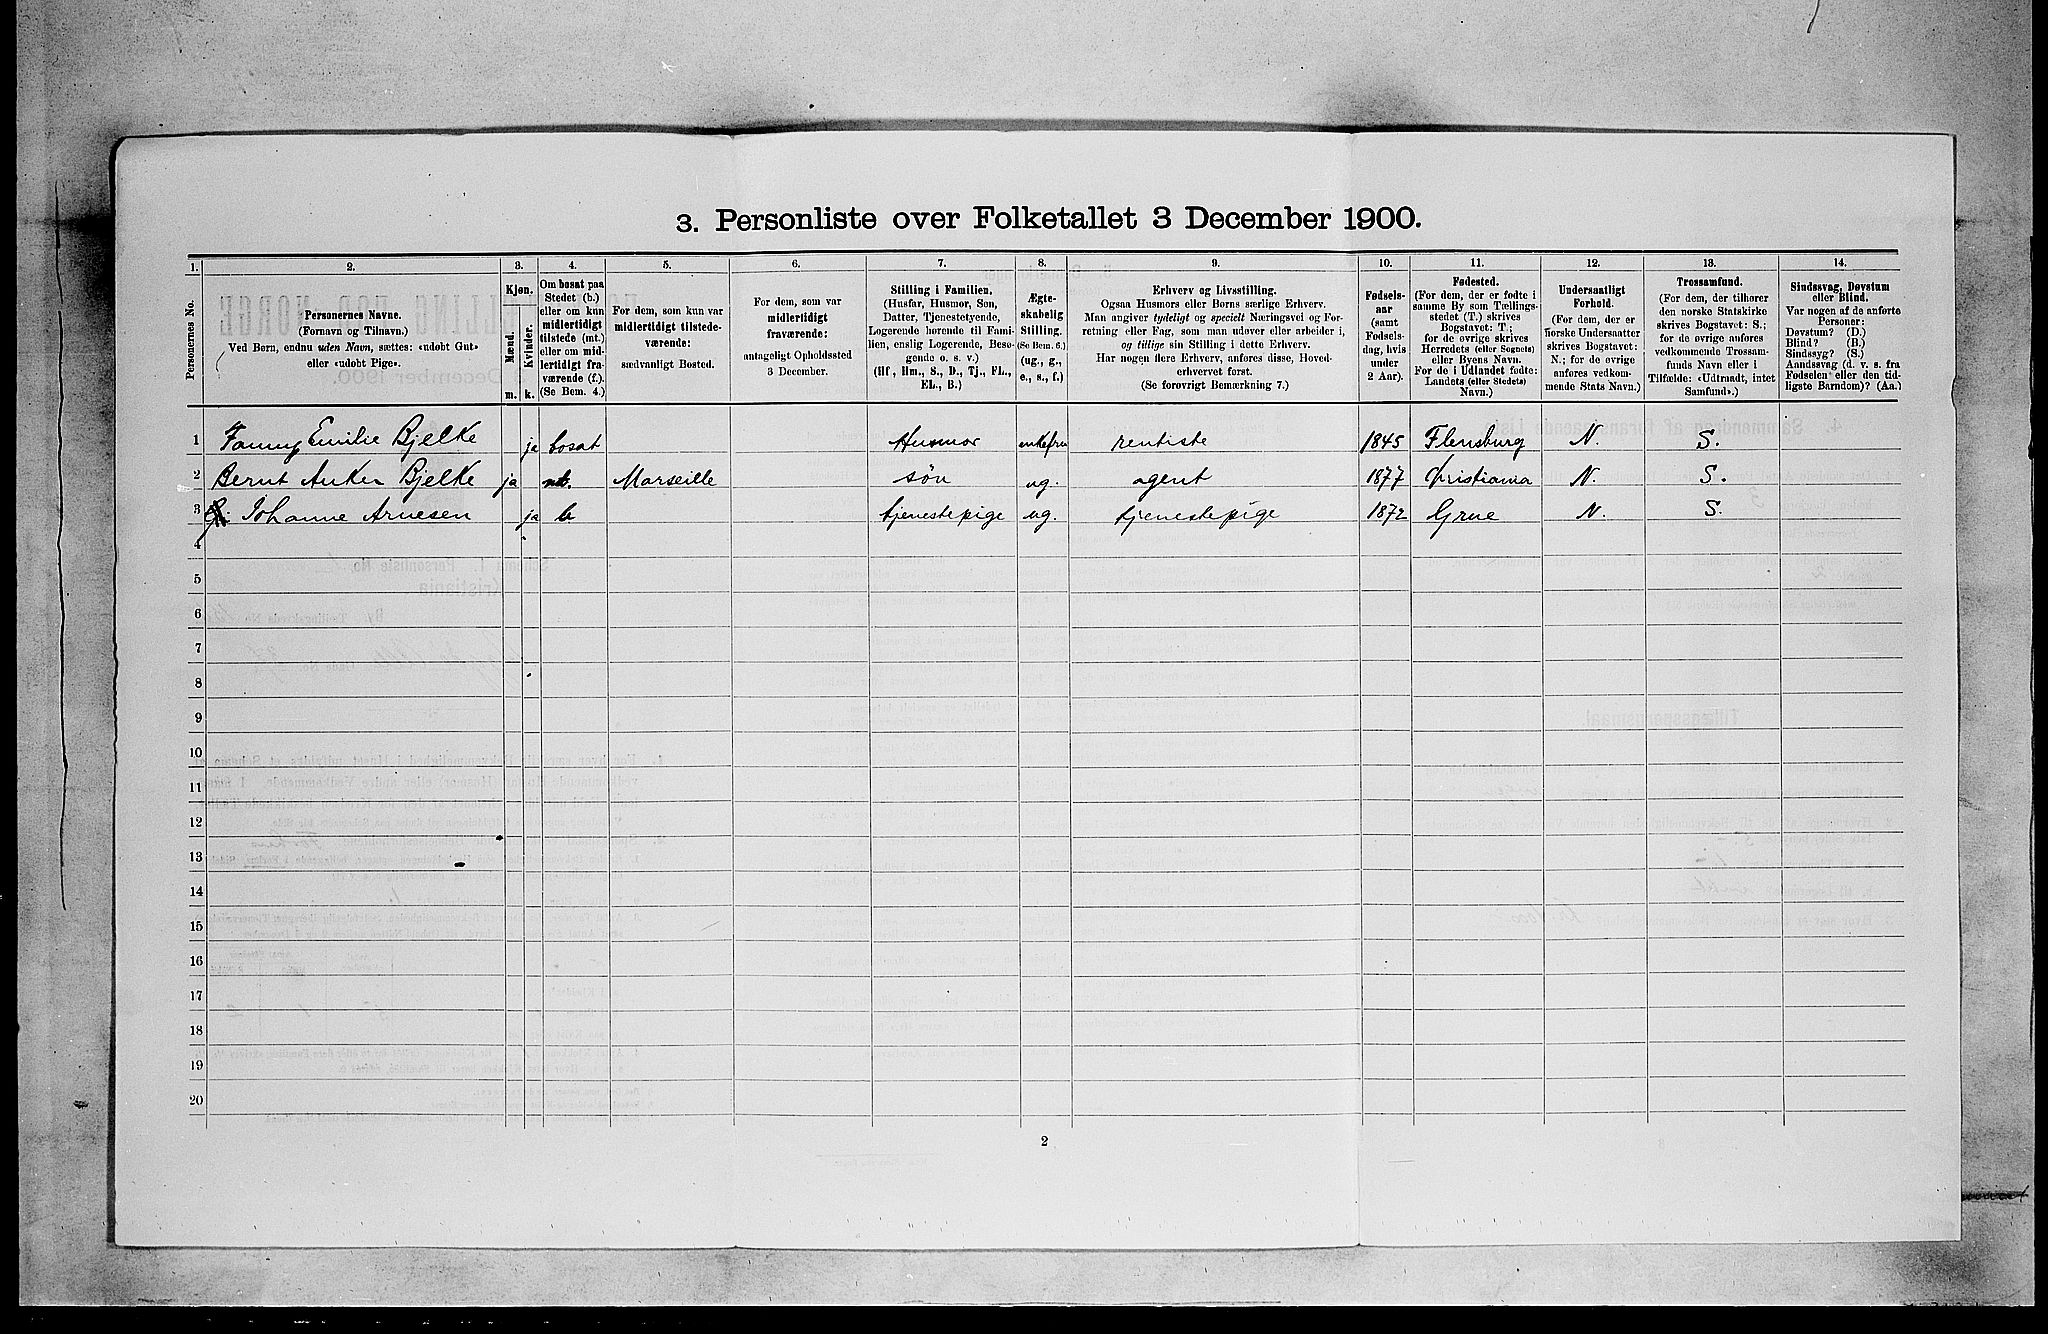 3. Personliste over Folketallet 3 December 1900.
1. 2. 3. 4. 5. 6. 7. 8. 9. 10. 11. 12. 13. 14.
Personernes No.
Personernes Navne.
(Fornavn og Tilnavn.)
Ved Børn, endnu uden Navn, sættes: «udøbt Gut»
eller «udøbt Pige».
Kjøn.
Mænd.
Kvinder.
m. k.
Om bosat paa
Stedet (b.)
eller om kun
midlertidigt
tilstede (mt.)
eller om mid-
lertidigt fra-
værende (f.).
(Se Bem. 4.)
For dem, som kun var
midlertidigt tilstede-
værende:
sædvanligt Bosted.
For dem, som var
midlertidigt
fraværende:
antageligt Opholdssted
3 December.
Stilling i Familien.
(Husfar, Husmor, Søn,
Datter, Tjenestetyende,
Logerende hørende til Fami-
lien, enslig Logerende, Besø-
gende o. s. v.)
(Hf., Hm., S., D., Tj., FL.,
EL., B.)
Ægte-
skabelig
Stilling.
(Se Bem. 6.)
(ug., g.,
e., s., f.)
Erhverv og Livsstilling.
Ogsaa Husmors eller Børns særlige Erhverv.
Man angiver tydeligt og specielt Næringsvei og For-
retning eller Fag, som man udøver eller arbeider i,
og tillige sin Stilling i dette Erhverv.
Har nogen flere Erhverv, anføres disse, Hoved-
erhvervet først.
(Se forøvrigt Bemærkning 7.)
Fødsels-
aar
(samt
Fødsels-
dag, hvis
under
2 Aar).
Fødested.
(For dem, der er fødte i
samme By som Tællings-
stedet (T.) skrives
Bogstavet: T;
for de øvrige skrives
Herredets (eller Sognets)
eller Byens Navn.
For de i Udlandet fødte:
Landets (eller Stedets)
Navn.)
Undersaatligt
Forhold.
(For dem, der er
norske Undersaatter
skrives Bogstavet:
N.; for de øvrige
anføres vedkom-
mende Stats Navn.)
Trossamfund.
(For dem, der tilhører
den norske Statskirke
skrives Bogstavet: S.;
for de øvrige anføres
vedkommende Trossam-
funds Navn eller i
Tilfælde: «Udtraadt, intet
Samfund».)
Sindssvag, Døvstum
eller Blind.
Var nogen af de anførte
Personer:
Døvstum? (D.)
Blind? (B.)
Sindssyg? (S.)
Aandssvag (d. v. s. fra
Fødselen eller den tid-
ligste Barndom)? (Aa.)
1 Fanny Emilie Bjelke ja bosat Husmor enkefru rentiste 1845 Flensburg N. S.
2 Bernt Anker Bjelke ja mt. Marseille søn ug. agent 1877 Kristiania N. S.
3 Johanne Arnesen ja b tjenestepige ug. tjenestepige 1872 Grue N. S.
4
5
6
7
8
9
10
11
12
13
14
15
16
17
18
19
20
2